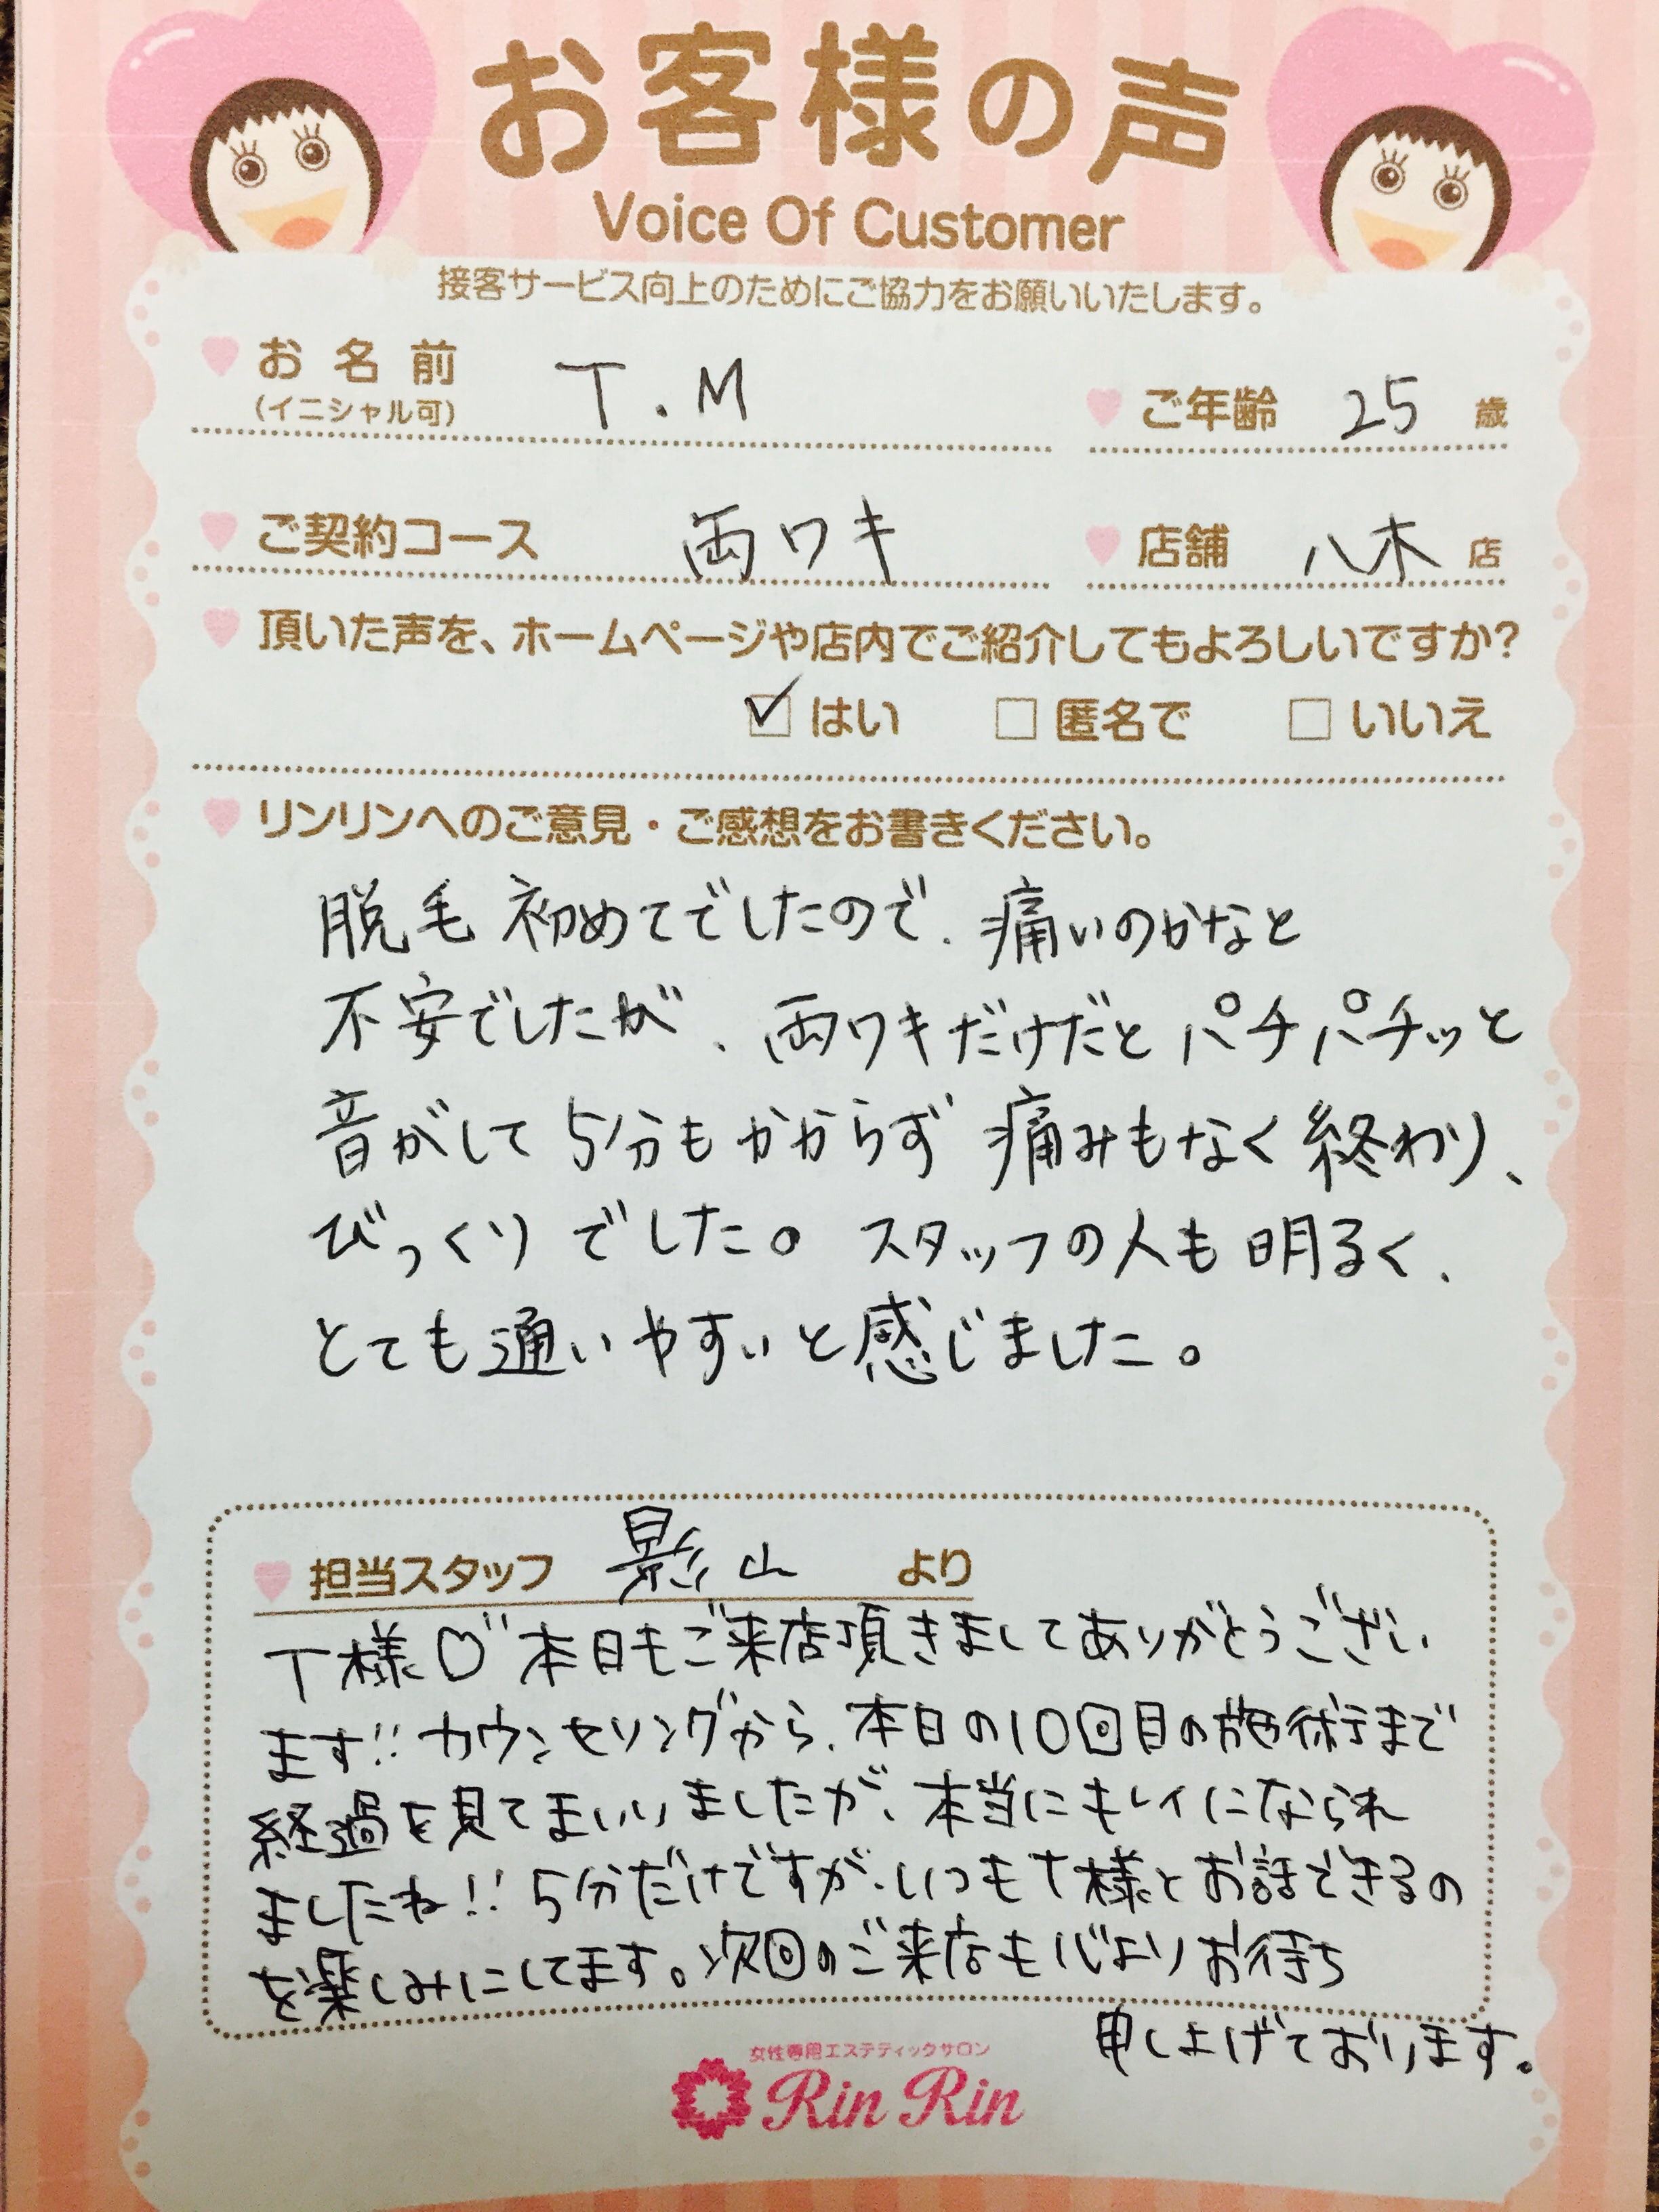 お客様の声
Voice Of Customer
接客サービス向上のためにご協力をお願いいたします。
お名前 T.M ご年齢 25 歳
(イニシャル可)
ご契約コース 両ワキ 店舗 八木 店
頂いた声を、ホームページや店内でご紹介してもよろしいですか?
はい 匿名で いいえ
リンリンへのご意見・ご感想をお書きください。
脱毛初めてでしたので、痛いのかなと
不安でしたが、両ワキだけだとパチパチッと
音がして5分もかからず痛みもなく終わり、
びっくりでした。スタッフの人も明るく、
とても通いやすいと感じました。
担当スタッフ 影山 より
T様♡"本日もご来店頂きましてありがとうござい
ます!!カウンセリングから、本日の10回目の施術まで
経過を見てまいりましたが、本当にキレイになられ
ましたね!!5分だけですが、いつもT様とお話できるの
を楽しみにしてます。次回のご来店も心よりお待ち
申し上げております。
女性専用エステティックサロン
Rin Rin